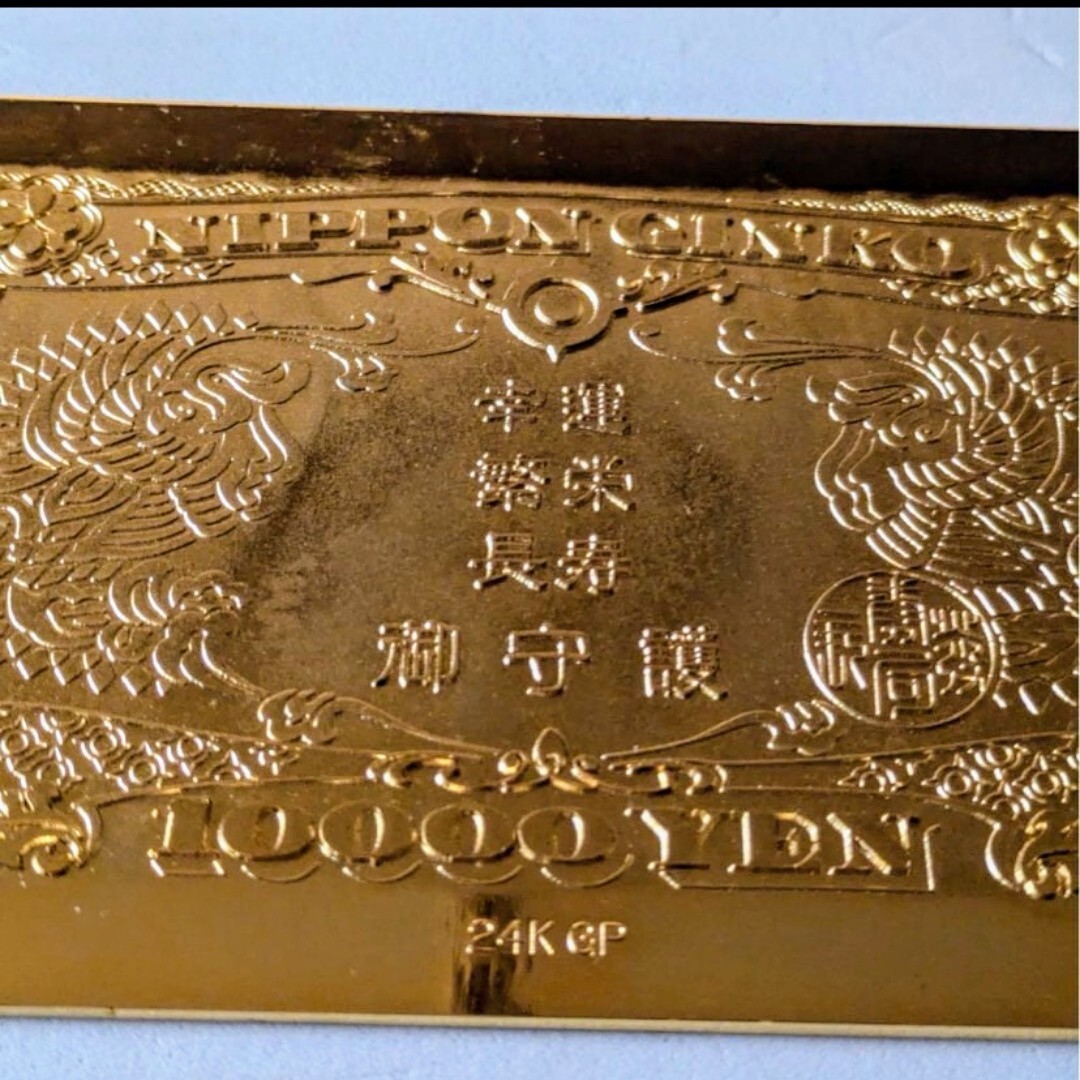 NIPPON GINKO
幸運
繁栄
長寿
御守護
10000 YEN
24K GP